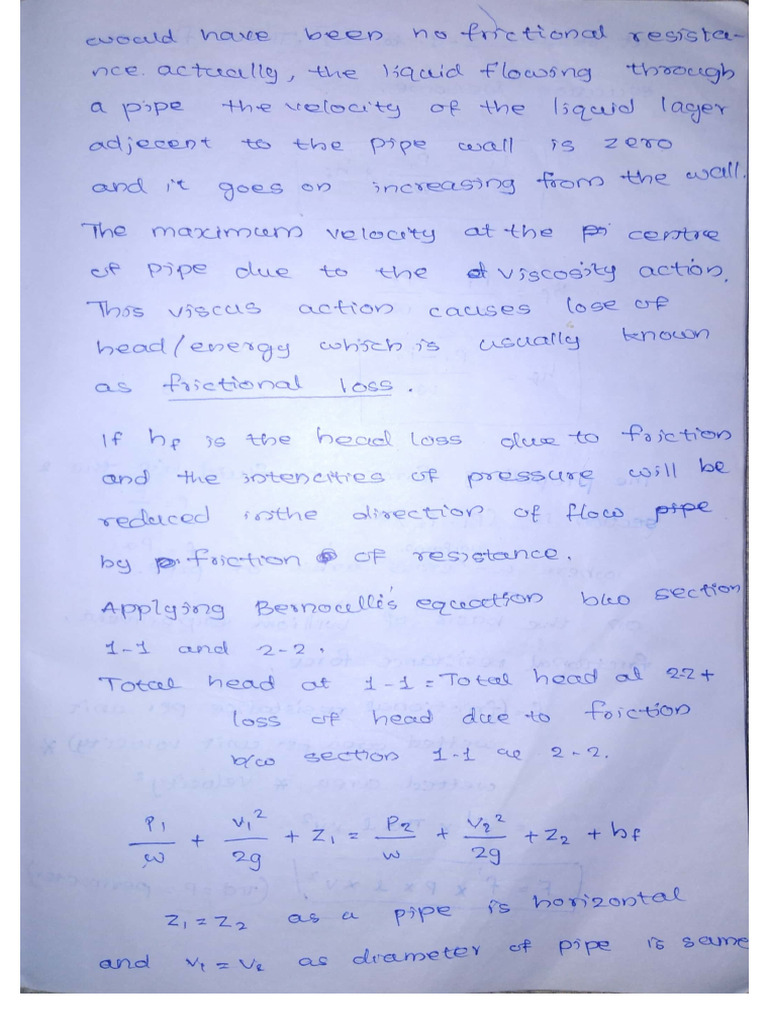 would have been no frictional resista-
nce. actually, the liquid flowing through
a pipe the velocity of the liquid layer
adjecent to the pipe wall is zero
and it goes on increasing from the wall.
The maximum velocity at the centre
of pipe due to the viscosity action.
This viscus action causes lose of
head/energy which is usually known
as frictional loss.
If hf is the head loss due to friction
and the intencities of pressure will be
reduced inthe direction of flow pipe
by friction of resistance.
Applying Bernoculli's equaction b/w section
1-1 and 2-2.
Total head at 1-1 = Total head al 2-2 +
loss of head due to friction
b/w section 1-1 ae 2-2.
P1/w + V1²/2g + Z1 = P2/w + V2²/2g + Z2 + hf
Z1 = Z2 as a pipe is horizontal
and V1 = V2 as diameter of pipe is same